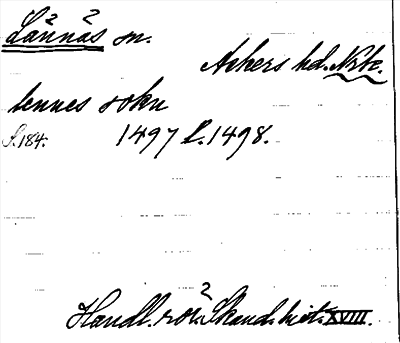 Lännäs sn.
Askers hd. Nrk.
lennes sokn
S. 184. 1497 l. 1498.
Handl. rör. Skand. hist. XVIII.